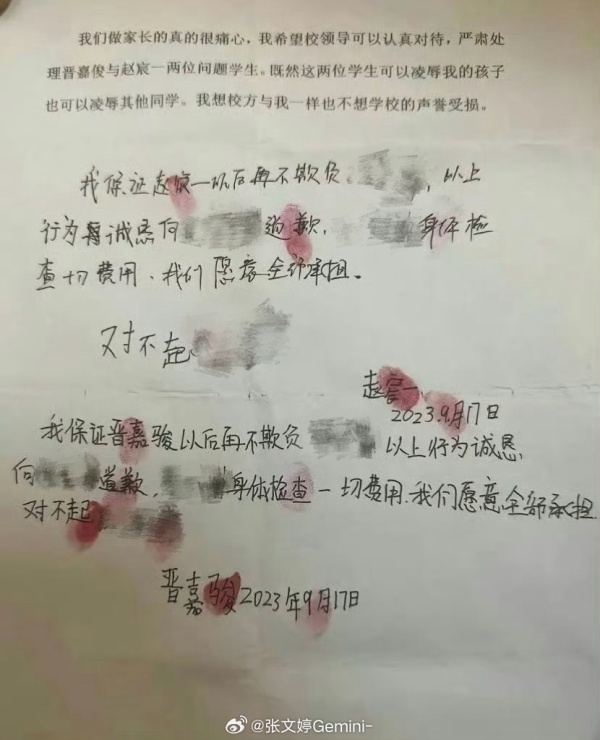 我们做家长的真的很痛心，我希望校领导可以认真对待，严肃处
理晋嘉俊与赵宸一两位问题学生。既然这两位学生可以凌辱我的孩子
也可以凌辱其他同学。我想校方与我一样也不想学校的声誉受损。
我保证赵宸一以后再不欺负，以上
行为 诚恳向 道歉， 身体检
查一切费用、我们愿意全部承担。
对不起
赵宸一
2023.9月17日
我保证晋嘉骏以后再不欺负 以上行为诚恳
向 道歉， 身体检查一切费用.我们愿意全部承担
对不起
晋嘉骏2023年9月17日
@张文婷Gemini-